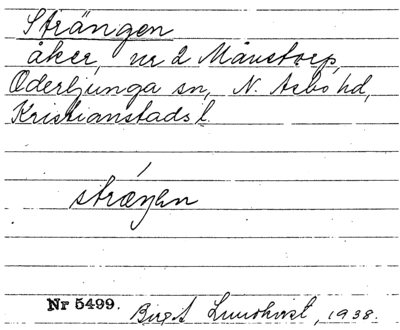 Strängen
åker, nr 2 Månstorp,
Oderljunga sn, N. Asbo hd,
Kristianstads l.
stræŋen
Nr 5499. Birgit Lundkvist, 1938.